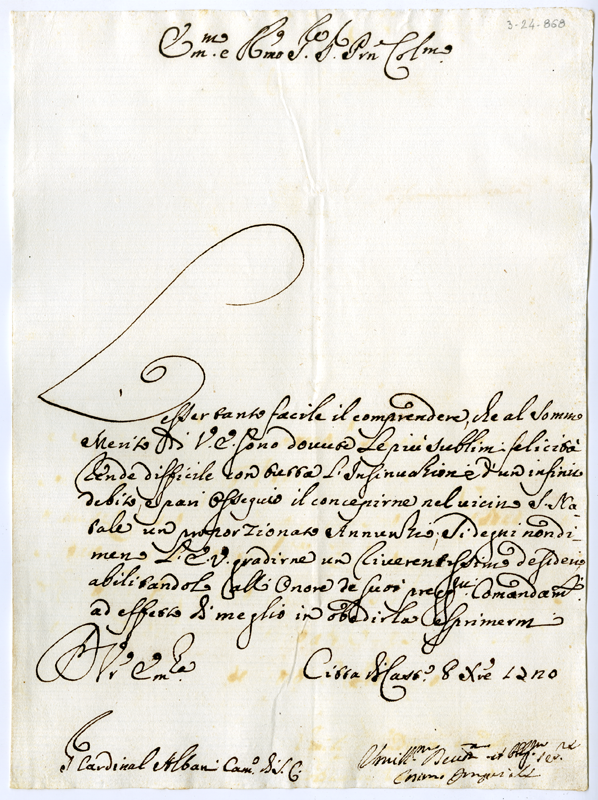 3-24-868
Em.mo e R.mo Sig. Sig. Prn Col.mo
L'esser tanto facile il comprendere, che al sommo
Merito di V. E. sono dovute le più sublimi felicità
rende difficile con tutta l'Insinuazione d'un infinito
debito, e pari ossequio il concepirne nel vicino S. Na
tale un proporzionato Annunzio; Si degni nondi
meno l'E. V. gradirne un riverentissimo desiderio
abilitandolo all'Onore de suoi preg.mi Comandam.ti
ad effetto di meglio in obedirla esprimermi
Di Vr̃a Em.za
Città di Cast.o 8 Xre 1720
S. Cardinal Albani Cam.o di S. C.
Umill.mo Devot.mo et Obl.mo Ser.re